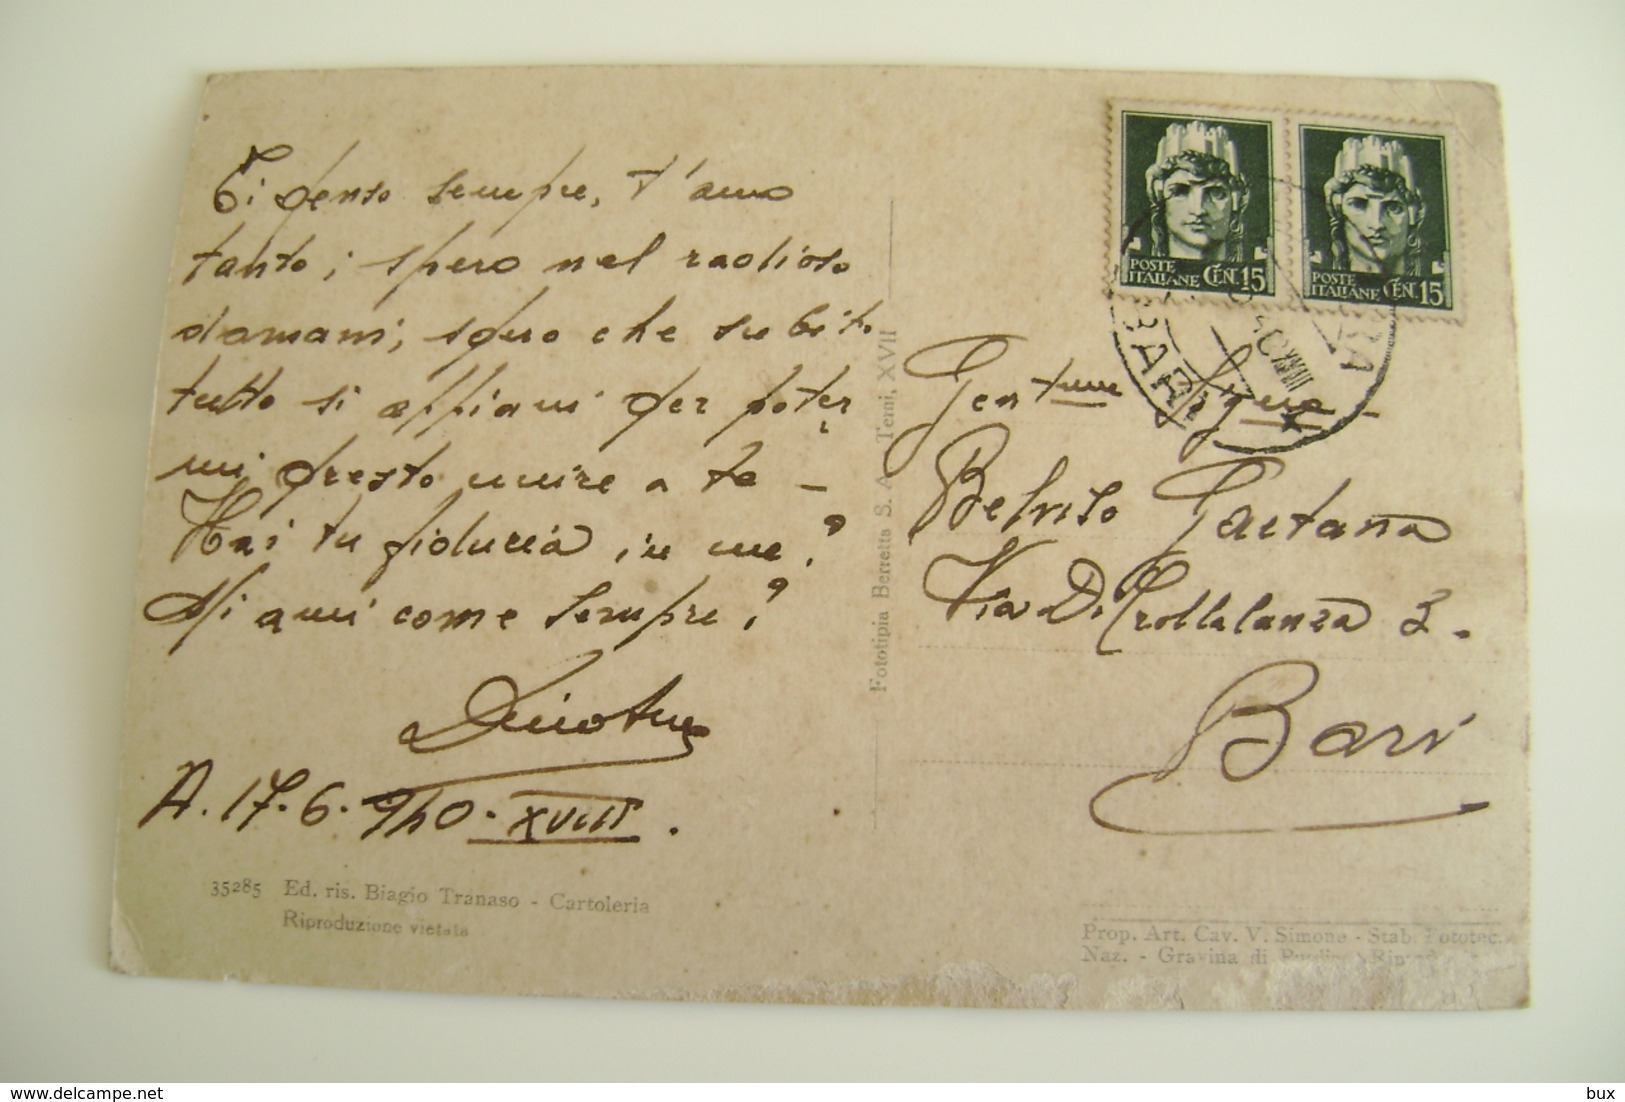 Ti penso sempre, t'amo
tanto; spero nel radioso
domani; spero che subito
tutto si appiani per poter
mi presto unire a te -
Hai tu fiducia in me?
Mi ami come sempre?
A. 17-6-940-XVIII.
35285 Ed. ris. Biagio Tranaso - Cartoleria
Riproduzione vietata
Fototipia Berretta S. A. Terni, XVII
POSTE
ITALIANE CEN.15
POSTE
ITALIANE CEN.15
BARI
Gent.me Sig.na -
Belviso Gaetana
Via Di Crollalanza 3.
Bari
Prop. Art. Cav. V. Simone - Stab. Fototec.
Naz. - Gravina di
bux